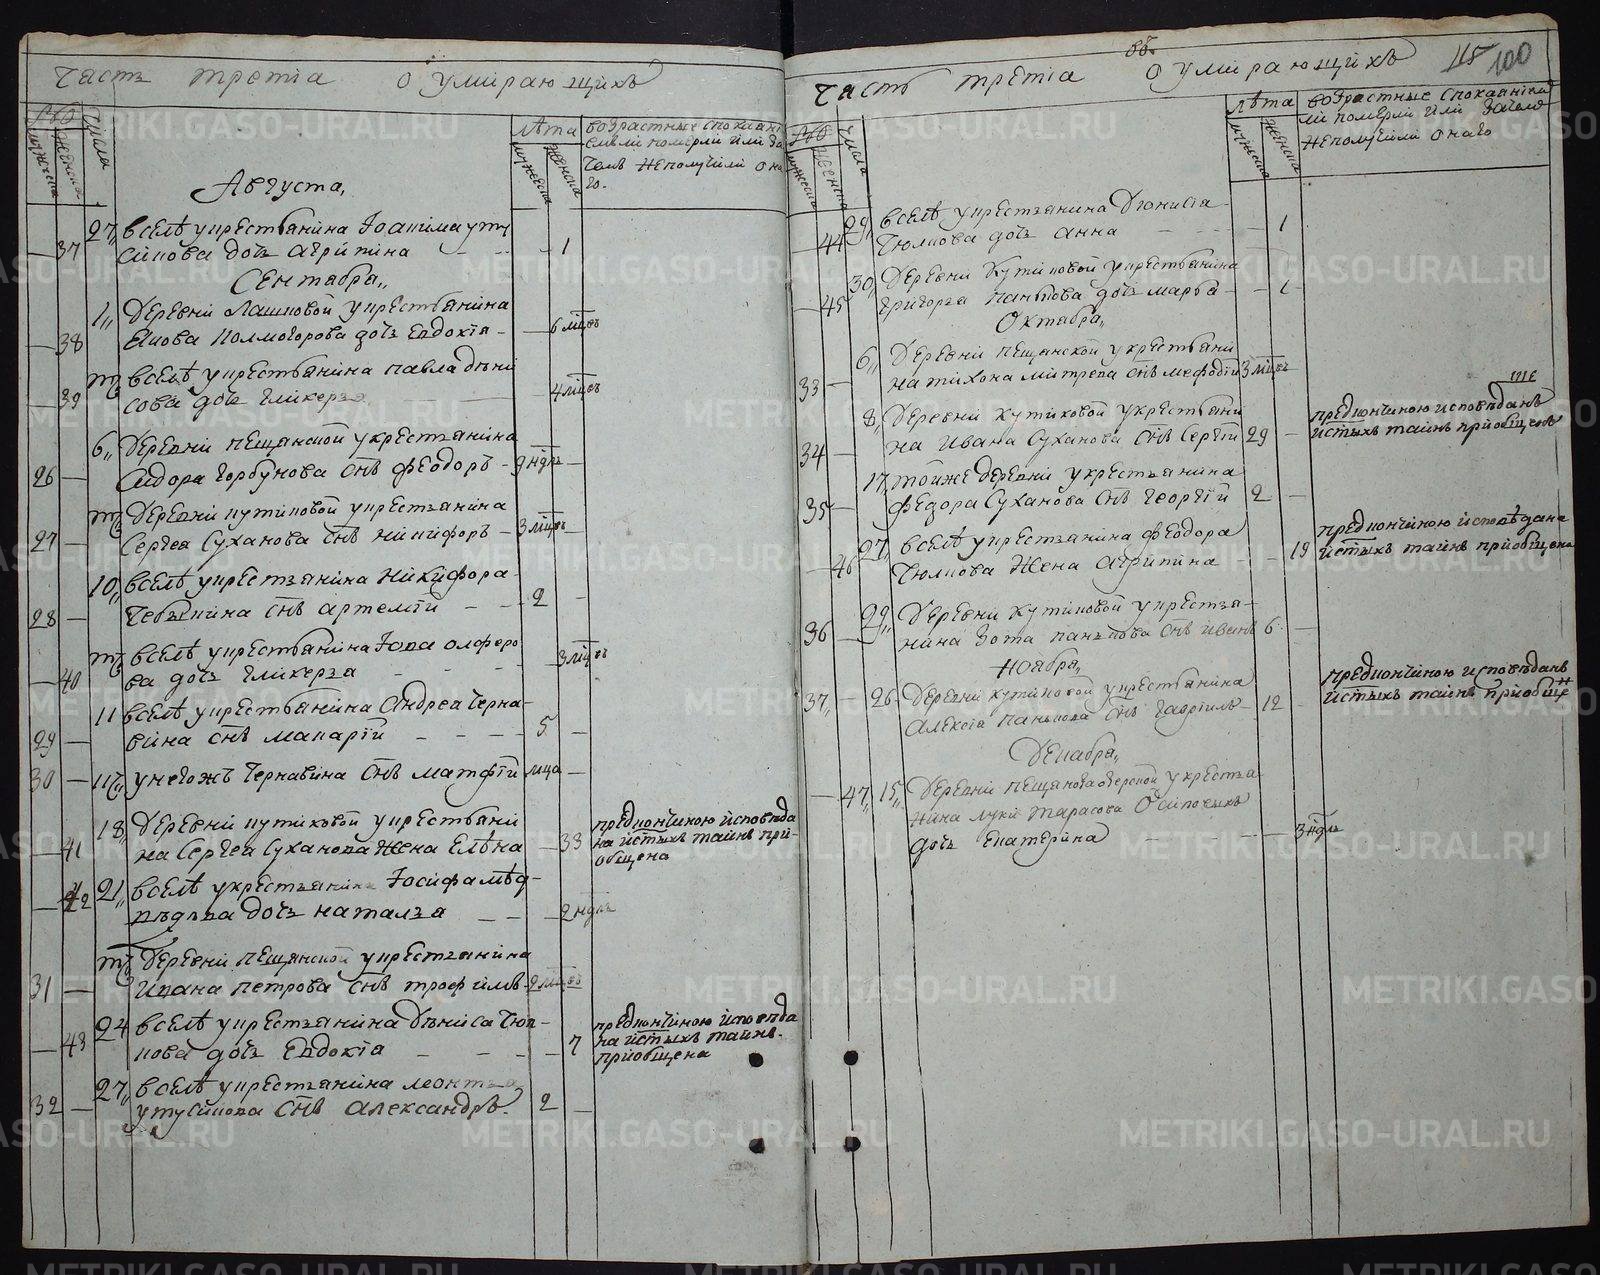 Часть третіа о умирающихъ
мужеска
женска
числа
лѣта
мужеска
женска
возрастные спокаяні
емъли померли или за
чемъ неполучили она
го.
Августа,
37 27 вселѣ укрестьянина Іоакима уту
сикова дочь агрипина - - - 1
Сентабра,
38 1 Деревни Лашковой укрестьянина
Якова Полмогорова дочь Евдокіа - 6 мцовъ
39 тг вселѣ укрестьянина павла дени
сова дочь гликерьа 4 мцовъ
26 6 Деревни пещанской укрестьянина
Сидора горбунова снъ феодоръ - 9 ндль
27 тг Деревни кутиковой укрестьянина
Сергеа Суханова снъ никифоръ - 3 мцовъ
28 10 вселѣ укрестьянина Никифора
Чебыкина снъ артемій - - 2
40 тг вселѣ укрестьянина Іова олферо
ва дочь гликерьа 3 мцовъ
29 11 вселѣ укрестьянина Андреа Черна-
вина снъ макарій - - - 5
30 11 унегожъ Чернавина снъ матфій мца
41 18 Деревни кутиковой укрестьяни
на Сергеа Суханова жена Елѣна - 33
предкончиною исповѣда
на истыхъ таинъ при-
общена
42 21 вселѣ укрестьянина Іосифа мѣд-
вѣдьва дочь наталья - - 2 ндль
31 тг Деревни пещанской укрестьянина
Ивана петрова снъ трофимъ - 2 мцовъ
43 24 вселѣ укрестьянина Дениса Тюл-
кова дочь Евдокіа - - - 7
предкончиною исповѣда
на истыхъ таинъ
пріобщена
32 27 вселѣ укрестьянина леонтьа
утусикова снъ Александръ. 2
об.
Часть третіа о умирающихъ
115 100
мужеска
женска
числа
лѣта
мужеска
женска
возрастные спокаяніем
ли померли или зачемъ
неполучили онаго
44 29 вселѣ укрестьянина Дионисіа
Тюлкова дочь анна - - - 1
45 30 Деревни Кутиковой укрестьянина
григорьа панькова дочь марьа - 1
Октабра,
33 6 Деревни пещанской укрестьяни
на тихона митрева снъ мефодій 3 мцовъ
34 8 Деревни кутиковой укрестьяни
на Ивана Суханова снъ Сергій 29
предкончиною исповѣданъ
истыхъ таинъ пріобщенъ
35 17 тойже деревни укрестьянина
федора Суханова снъ георгій 2
46 27 вселѣ укрестьянина феодора
Тюлкова жена агрипина 19
предкончиною исповѣдана
истыхъ таинъ пріобщена
36 29 Деревни кутиковой укрестьа-
нина Зота панькова снъ иванъ 6
Ноабра,
37 26 Деревни кутиковой укрестьянина
Алексіа панькова снъ гавріилъ - 12
предкончиною исповѣданъ
истыхъ таинъ пріобще
Декабра,
47 15 Деревни пещаноозерской укрестьа
нина луки тарасова Осиповыхъ
дочь Екатерина - - 3 ндль